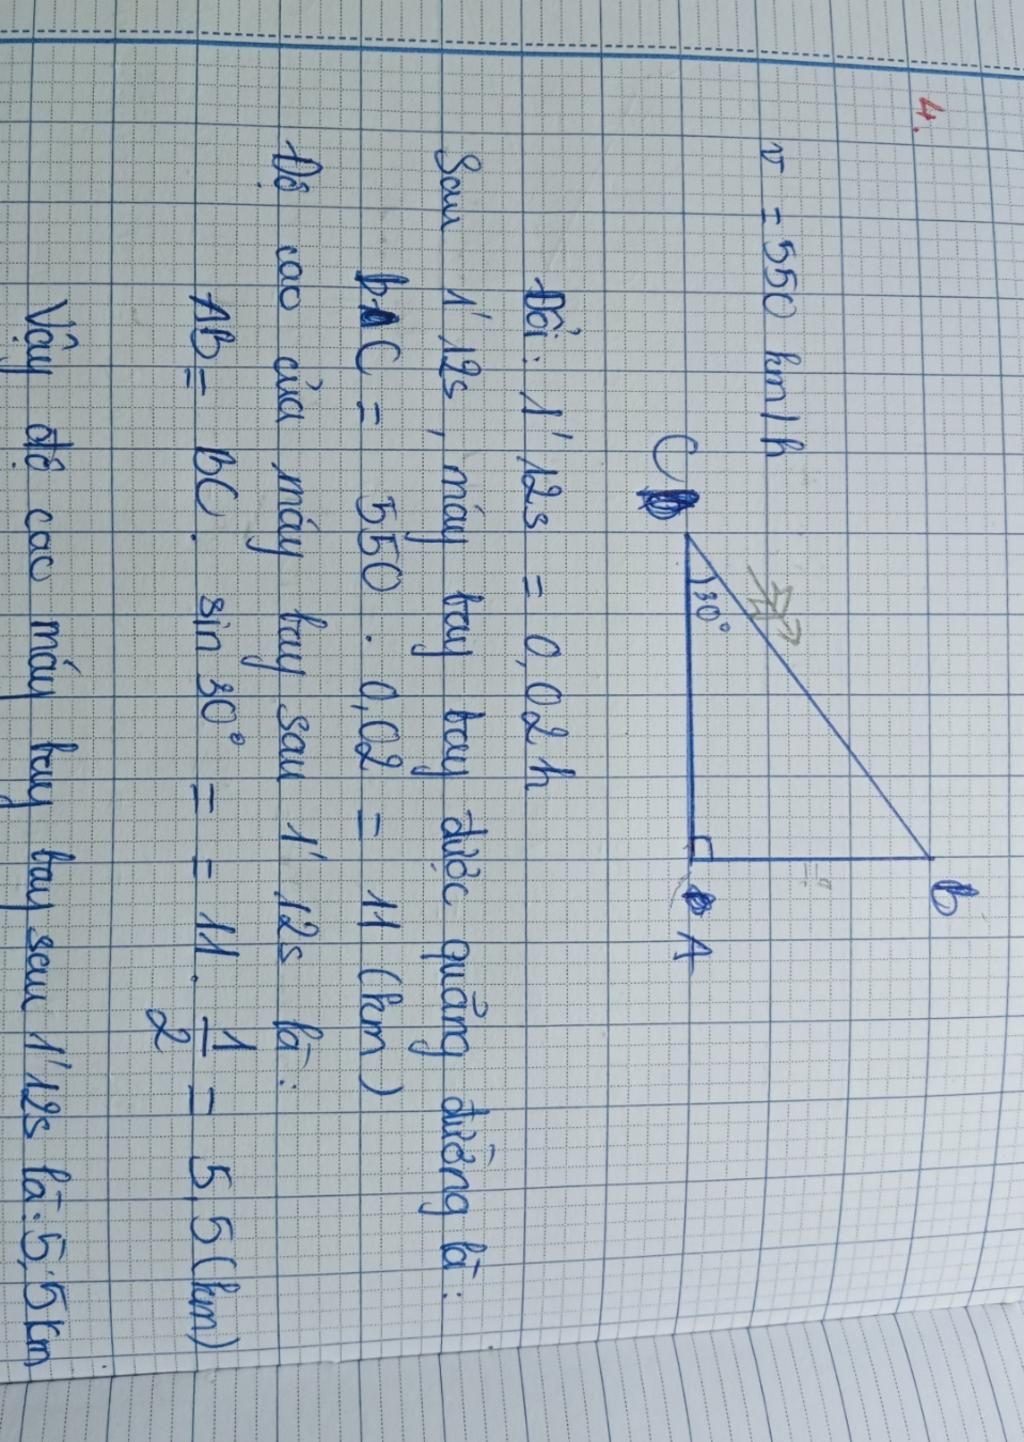 4.
v = 550 km/h
B
C
30°
A
Đổi: 1' 12s = 0,02 h
Sau 1' 12s, máy bay bay được quãng đường là:
BC = 550 . 0,02 = 11 (km)
Độ cao của máy bay sau 1' 12s là:
AB = BC . sin 30° = = 11 . 1/2 = 5,5 (km)
Vậy độ cao máy bay bay sau 1' 12s là: 5,5 km